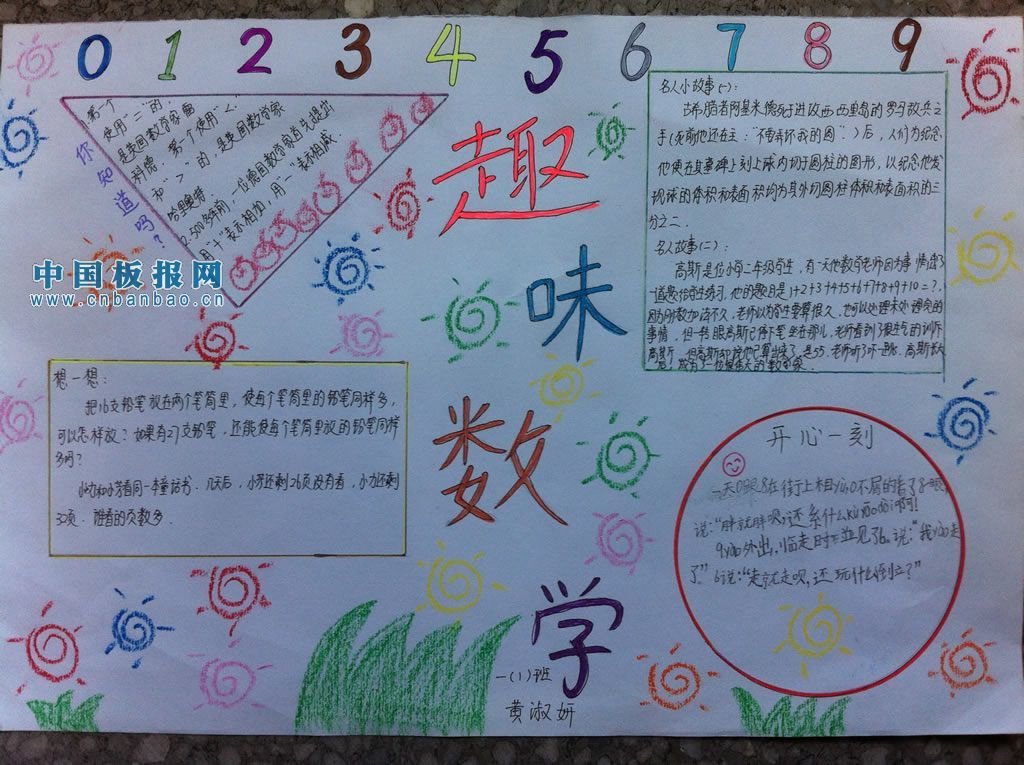 0 1 2 3 4 5 6 7 8 9
趣
味
数
学
一(1)班
黄淑妍
你知道吗？
第一个
使用“=”的，
是英国数学家雷
科德。第一个使用“<”
和“>”的，是英国数学家
哈里奥特
500多年前，一位德国数学家首先提出
用“+”表示相加，用“一”表示相减.
中国板报网
www.cnbanbao.cn
名人小故事(一)：
古希腊者阿基米德死于进攻西西里岛的罗马敌兵之
手(死前他还在主：“不要弄坏我的圆”)后，人们为纪念
他便在其墓碑上刻上球内切于圆柱的图形，以纪念他发
现球的体积和表面积均为其外切圆柱体积和表面积的三
分之二.
名人故事(二)：
高斯是位小学二年级学生，有一天他数学老师因为事情
一道题给学生练习，他的题目是1+2+3+4+5+6+7+8+9+10=?，
因为加法
事情，但一转眼高斯已停下笔坐在那儿，老师看到了很生气的训斥
高斯，但高斯却说他已算出来了，是55，老师听了吓一跳，高斯长大
后，成为了一位很伟大的数学家.
想一想：
把16支铅笔放在两个笔筒里，使每个笔筒里的铅笔同样多，
可以怎样放？如果有27支铅笔，还能使每个笔筒里放的铅笔同样
多吗？
小力和小芳看同一本童话书.几天后，小芳还剩26页没有看，小力还剩
32页.谁看的页数多.
开心一刻
一天0跟8在街上相yù，0不屑的看了8一眼，
说：“胖就胖呗，还系什么kù yāo dài啊！
9yào外出，临走时下
说：“我yào走
了”6说：“走就走呗，还玩什么倒立？”